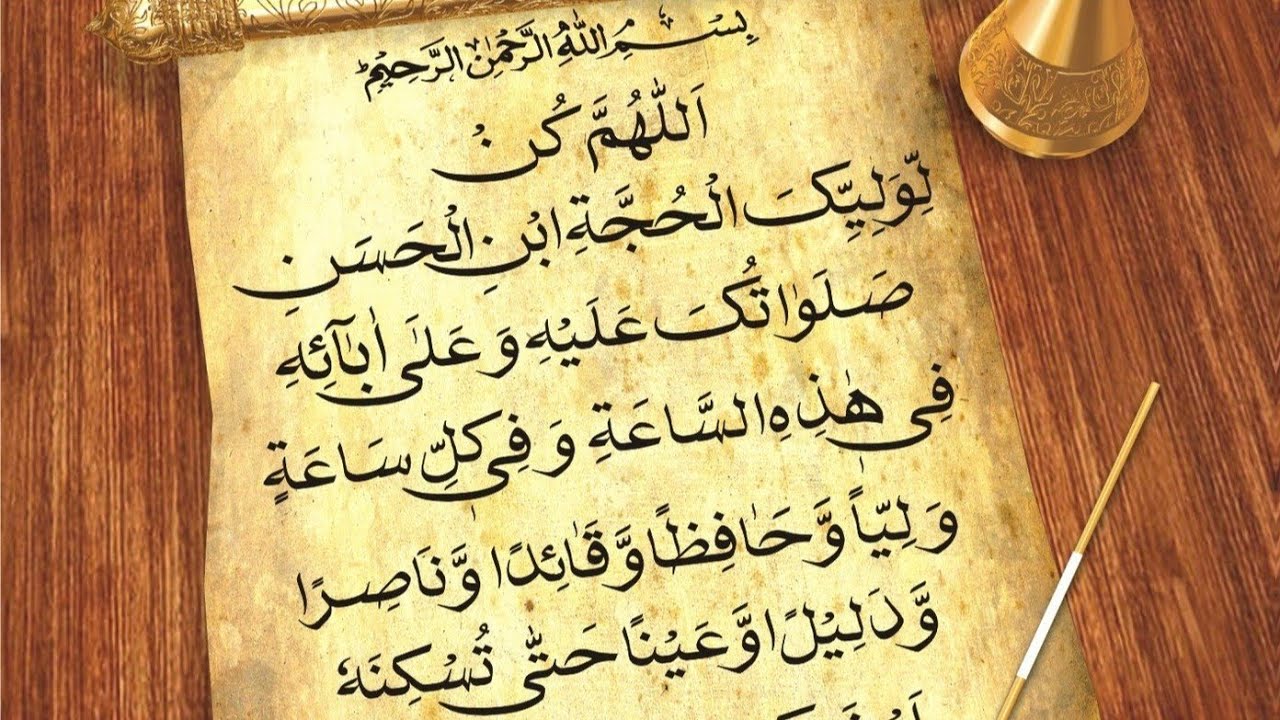 بِسْمِ اللّٰهِ الرَّحْمٰنِ الرَّحِیْمِ
اَللّٰهُمَّ كُنْ
لِّوَلِیِّکَ الْحُجَّةِ ابْنِ الْحَسَنِ
صَلَوٰاتُکَ عَلَیْهِ وَ عَلَی اٰبٰآئِهِ
فِی هٰذِهِ السَّاعَةِ وَ فِی کُلِّ سَاعَةٍ
وَلِیّاً وَّحَافِظًا وَّقَائِدًا وَّنَاصِرًا
وَّدَلِیْلًا وَّعَیْنًا حَتّٰی تُسْکِنَهٗ